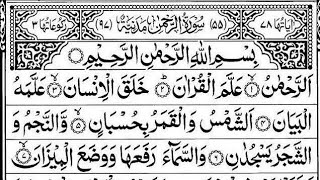 اٰيَاتُهَا ٧٨ (٥٥) سُوْرَةُ الرَّحْمٰنِ مَدَنِيَّةٌ (٩٧) رُكُوْعَاتُهَا ٣
بِسْمِ اللّٰهِ الرَّحْمٰنِ الرَّحِيْمِ
اَلرَّحْمٰنُ ۙ﴿١﴾ عَلَّمَ الْقُرْاٰنَ ؕ﴿٢﴾ خَلَقَ الْاِنْسَانَ ۙ﴿٣﴾ عَلَّمَهُ
الْبَيَانَ ﴿٤﴾ اَلشَّمْسُ وَ الْقَمَرُ بِحُسْبَانٍ ﴿٥﴾ وَّ النَّجْمُ وَ
الشَّجَرُ يَسْجُدٰنِ ﴿٦﴾ وَ السَّمَآءَ رَفَعَهَا وَ وَضَعَ الْمِيْزَانَ ۙ﴿٧﴾